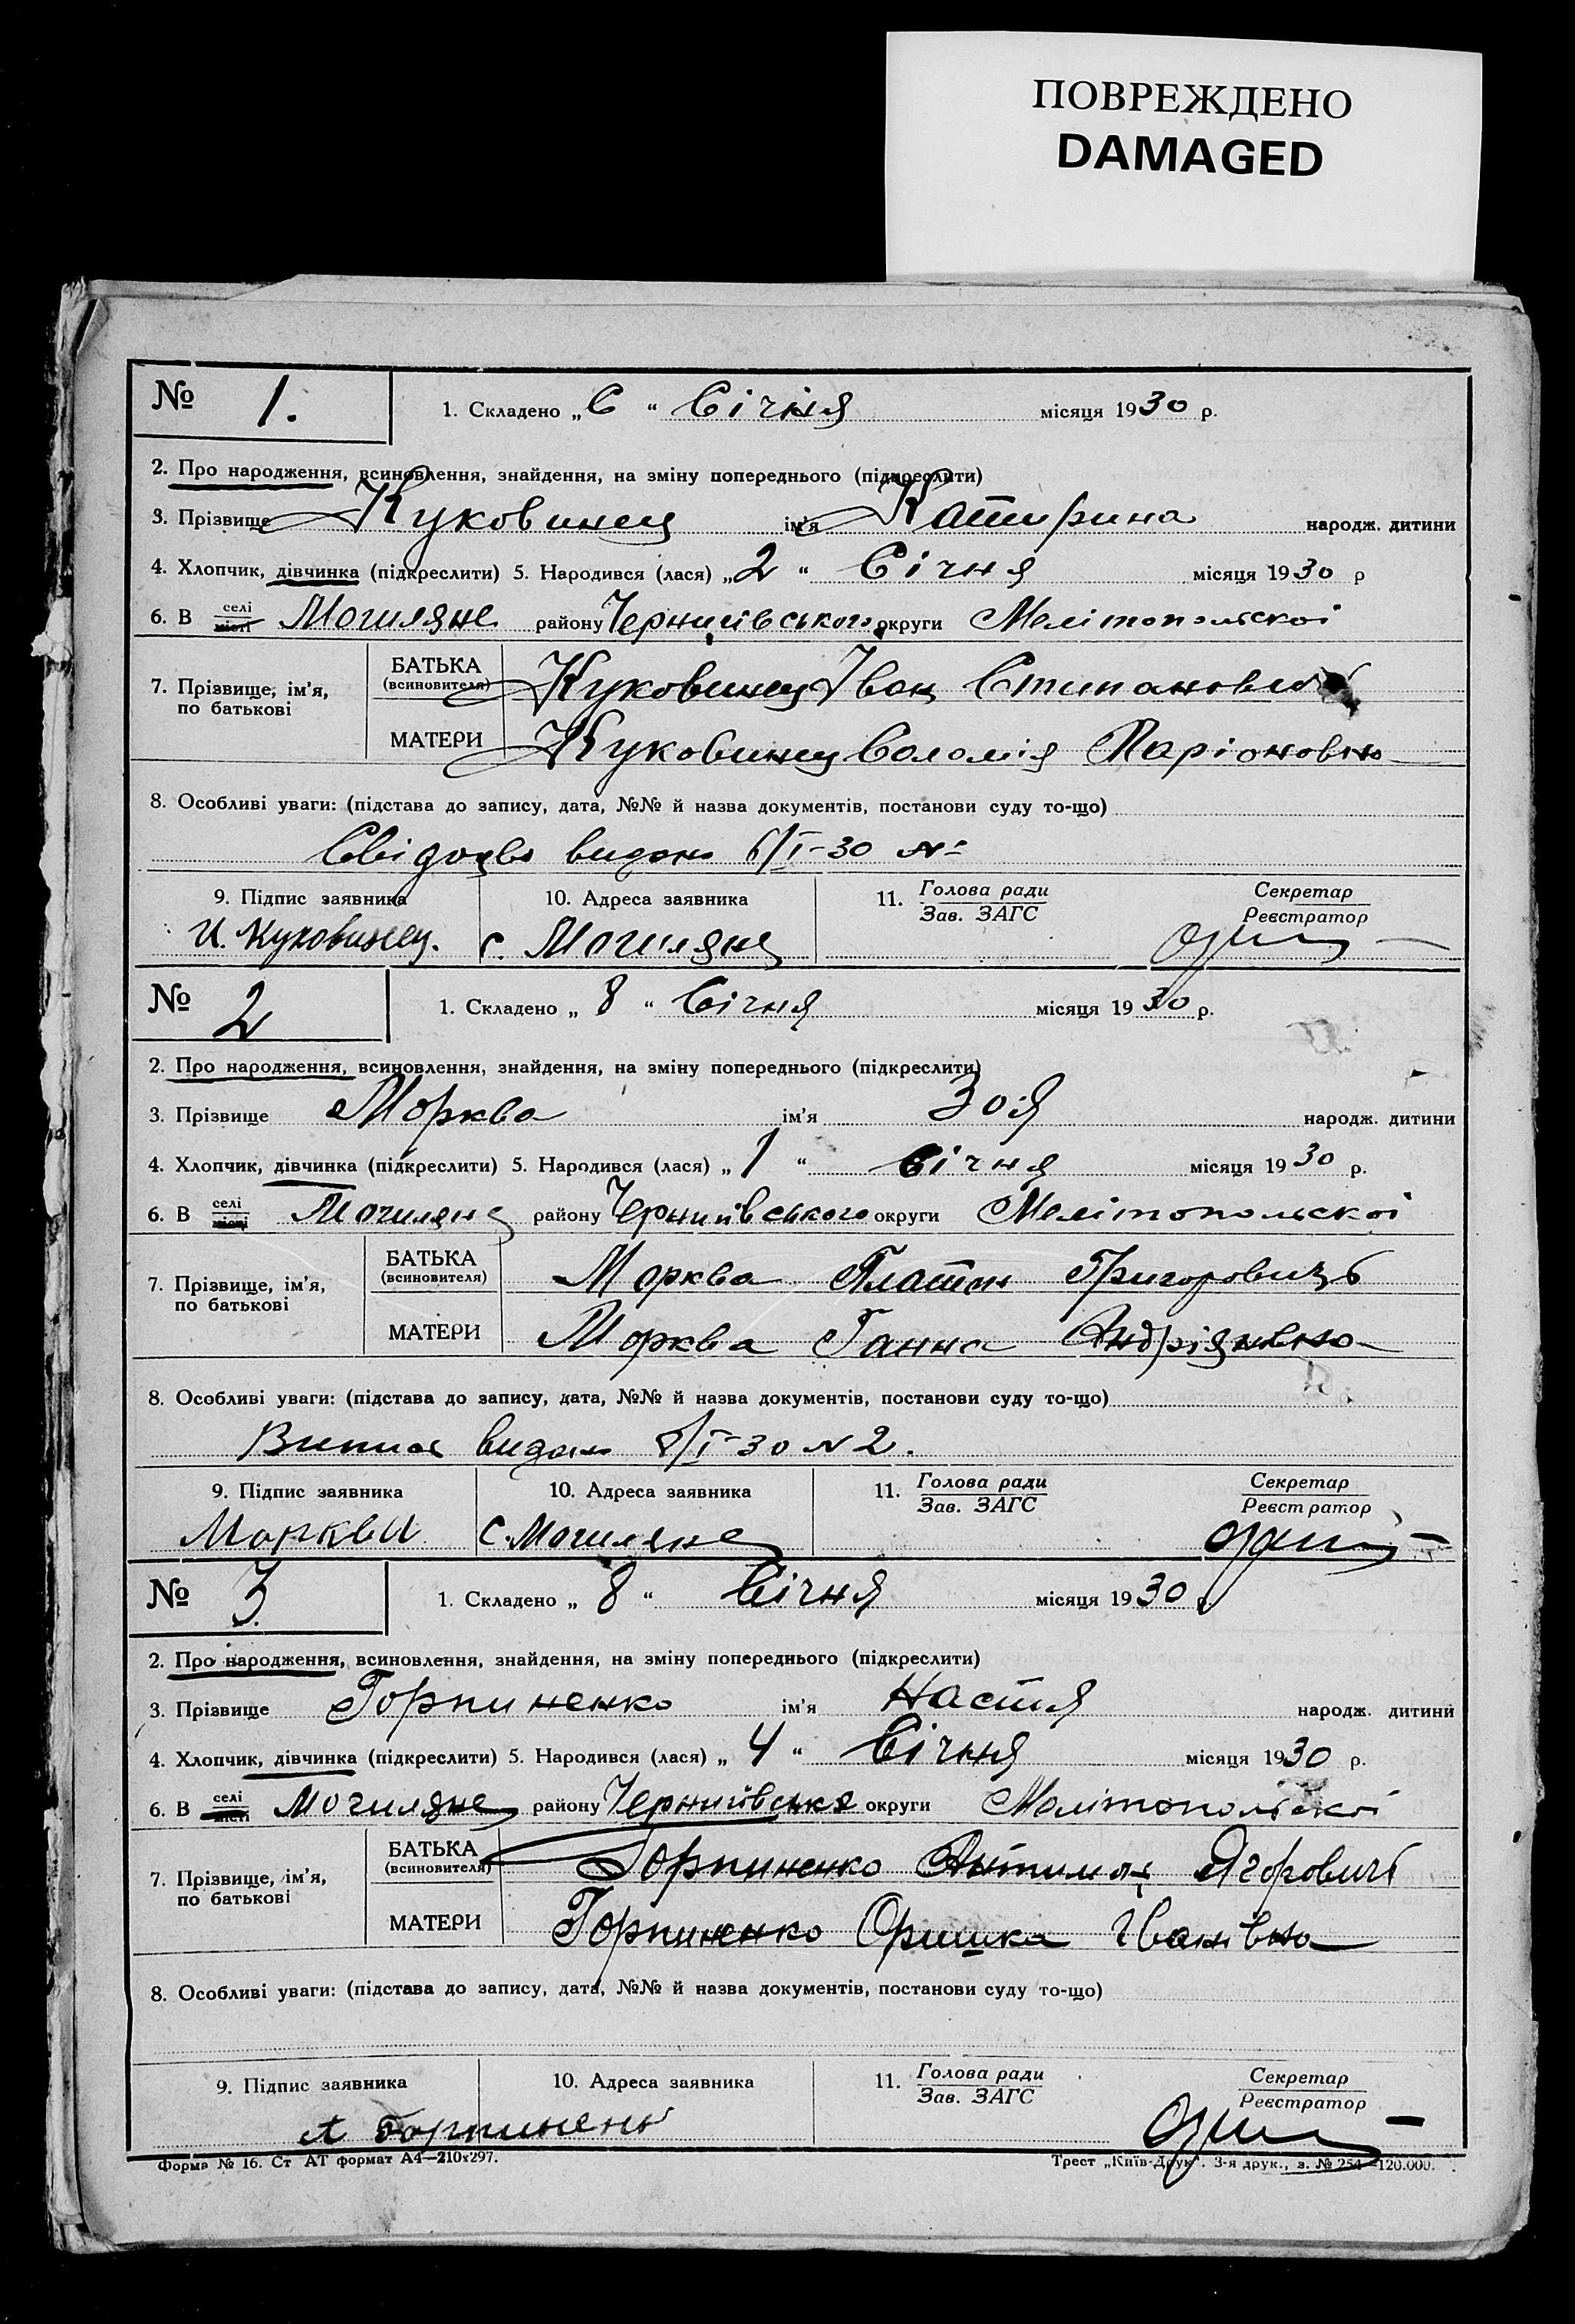 ПОВРЕЖДЕНО
DAMAGED
№ 1.
1. Складено „6“ Січня місяця 1930 р.
2. Про народження, всиновлення, знайдення, на зміну попереднього (підкреслити)
3. Прізвище Куковинец ім'я Катирина народж. дитини
4. Хлопчик, дівчинка (підкреслити) 5. Народився (лася) „2“ Січня місяця 1930 р
6. В селі місті Могиляне району Чернигівського округи Мелітопольскої
7. Прізвище, ім'я, по батькові
БАТЬКА (всиновителя) Куковинец Іван Стипанович
МАТЕРИ Куковинец Соломія Ларіоновно
8. Особливі уваги: (підстава до запису, дата, №№ й назва документів, постанови суду то-що)
Свідоцво видано 6/I-30 №
9. Підпис заявника
10. Адреса заявника
11. Голова ради Зав. ЗАГС
Секретар Реєстратор
И. Куковинец. с. Могиляне
№ 2
1. Складено „8“ Січня місяця 1930 р.
2. Про народження, всиновлення, знайдення, на зміну попереднього (підкреслити)
3. Прізвище Морква ім'я Зоя народж. дитини
4. Хлопчик, дівчинка (підкреслити) 5. Народився (лася) „1“ Січня місяця 1930 р.
6. В селі місті Могиляне району Чернигівського округи Мелітопольскої
7. Прізвище, ім'я, по батькові
БАТЬКА (всиновителя) Морква Платон Григоровичь
МАТЕРИ Морква Ганна Андріяновно
8. Особливі уваги: (підстава до запису, дата, №№ й назва документів, постанови суду то-що)
Випис видано 8/I-30 N 2.
9. Підпис заявника
10. Адреса заявника
11. Голова ради Зав. ЗАГС
Секретар Реєстратор
Моркви с. Могиляне
№ 3
1. Складено „8“ Січня місяця 1930 р.
2. Про народження, всиновлення, знайдення, на зміну попереднього (підкреслити)
3. Прізвище Горпиненко ім'я Настя народж. дитини
4. Хлопчик, дівчинка (підкреслити) 5. Народився (лася) „4“ Січня місяця 1930 р.
6. В селі місті Могиляне району Чернигівська округи Мелітопольскої
7. Прізвище, ім'я, по батькові
БАТЬКА (всиновителя) Горпиненко Ягорович
МАТЕРИ Горпиненко Оришка Іванівно
8. Особливі уваги: (підстава до запису, дата, №№ й назва документів, постанови суду то-що)
9. Підпис заявника
10. Адреса заявника
11. Голова ради Зав. ЗАГС
Секретар Реєстратор
Форма № 16. Ст АТ формат А4—210x297.
Трест „Київ-Друк“. 3-я друк., з. № 254—120.000.